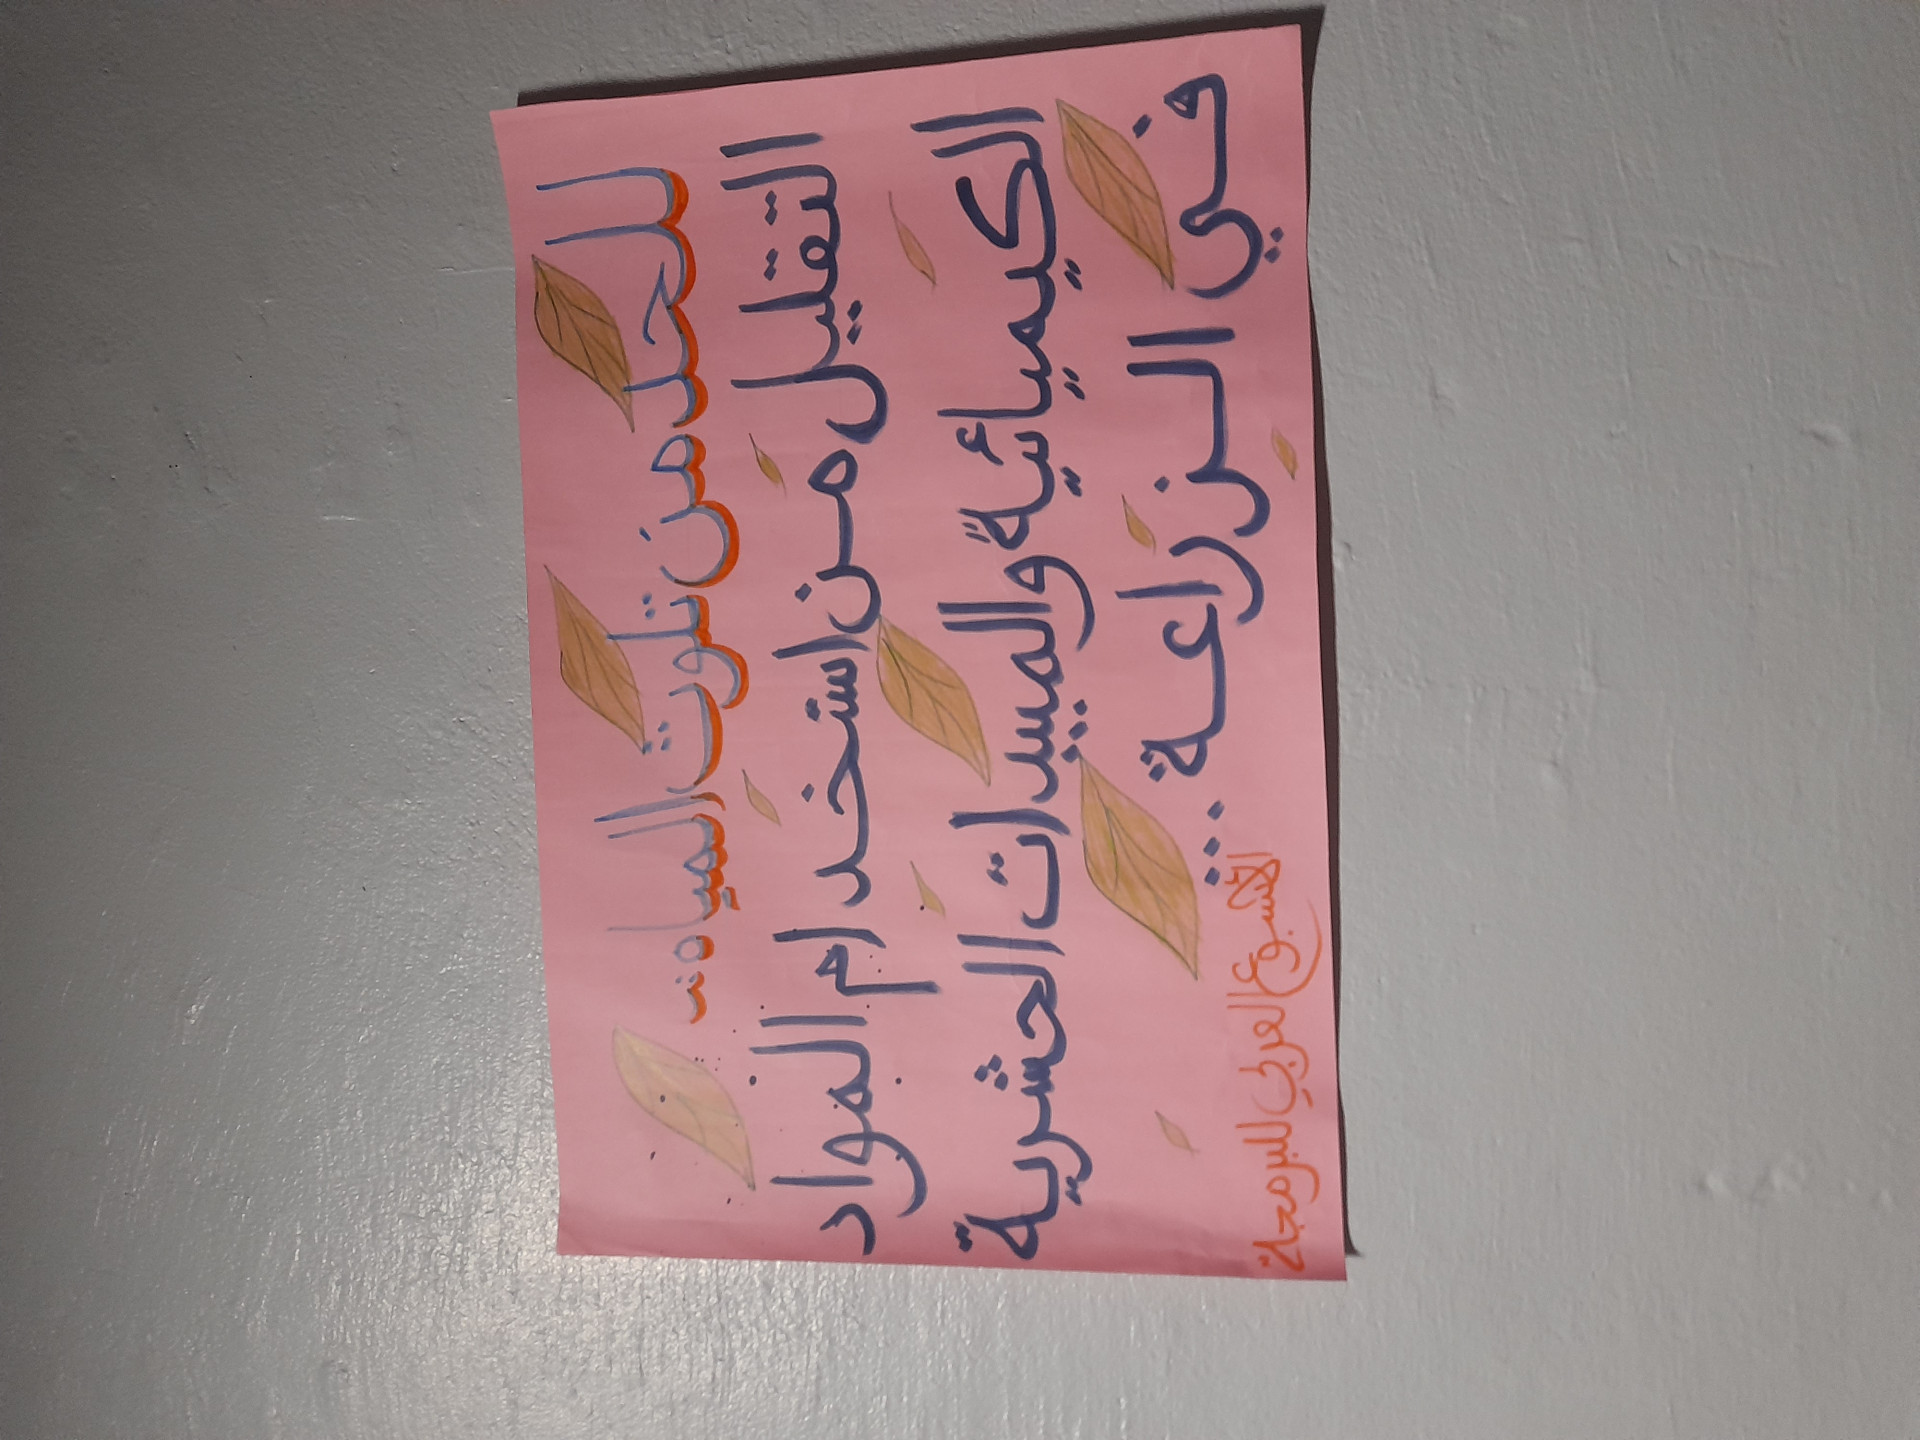 للحد من تلوث المياه :-
التقليل من استخدام المواد
الكيميائية والمبيدات الحشرية
في الزراعة ...
الأسبوع العربي للبرمجة